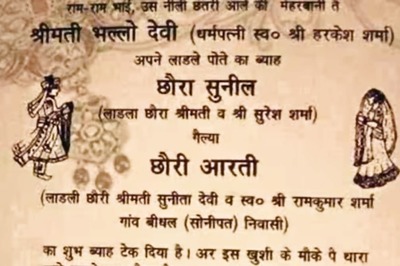 राम-राम भाई, उस नीली छतरी आले की मेहरबानी ते
श्रीमती भल्लो देवी (धर्मपत्नी स्व० श्री हरकेश शर्मा)
अपने लाडले पोते का ब्याह
छौरा सुनील
(लाडला छौरा श्रीमती व श्री सुरेश शर्मा)
गैल्या
छौरी आरती
(लाडली छौरी श्रीमती सुनीता देवी व स्व० श्री रामकुमार शर्मा
गांव बीधल (सोनीपत) निवासी)
का शुभ ब्याह टेक दिया है। अर इस खुशी के मौके पै थारा